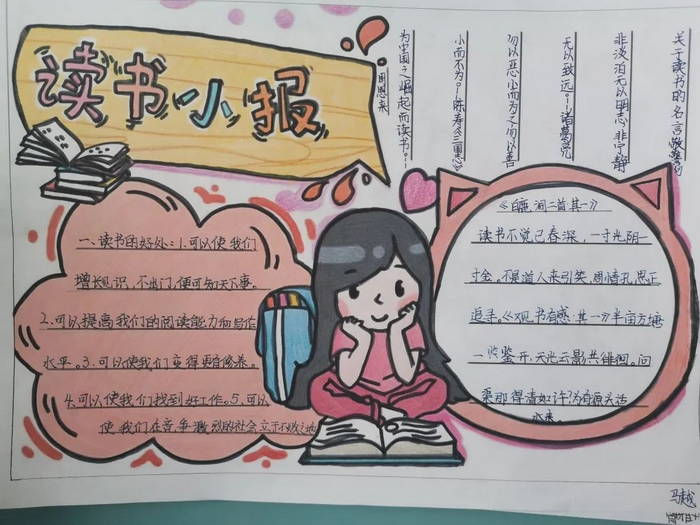 读书小报
关于读书的名言
非淡泊无以明志,非宁静
无以致远。——诸葛亮
勿以恶小而为之勿以善
小而不为。——陈寿《三国志》
为中国之崛起而读书。——
周恩来
一、读书的好处:1.可以使我们
增长见识,不出门,便可知天下事。
2.可以提高我们的阅读能力和写作
水平。3.可以使我们变得更有修养。
4.可以使我们找到好工作。5.可以
使我们在竞争激烈的社会立于不败之地
《白鹿洞二首·其一》
读书不觉已春深,一寸光阴一
寸金。不是道人来引笑,周情孔思正
追寻。《观书有感·其一》半亩方塘
一鉴开,天光云影共徘徊。问
渠那得清如许?为有源头活
水来。
马越